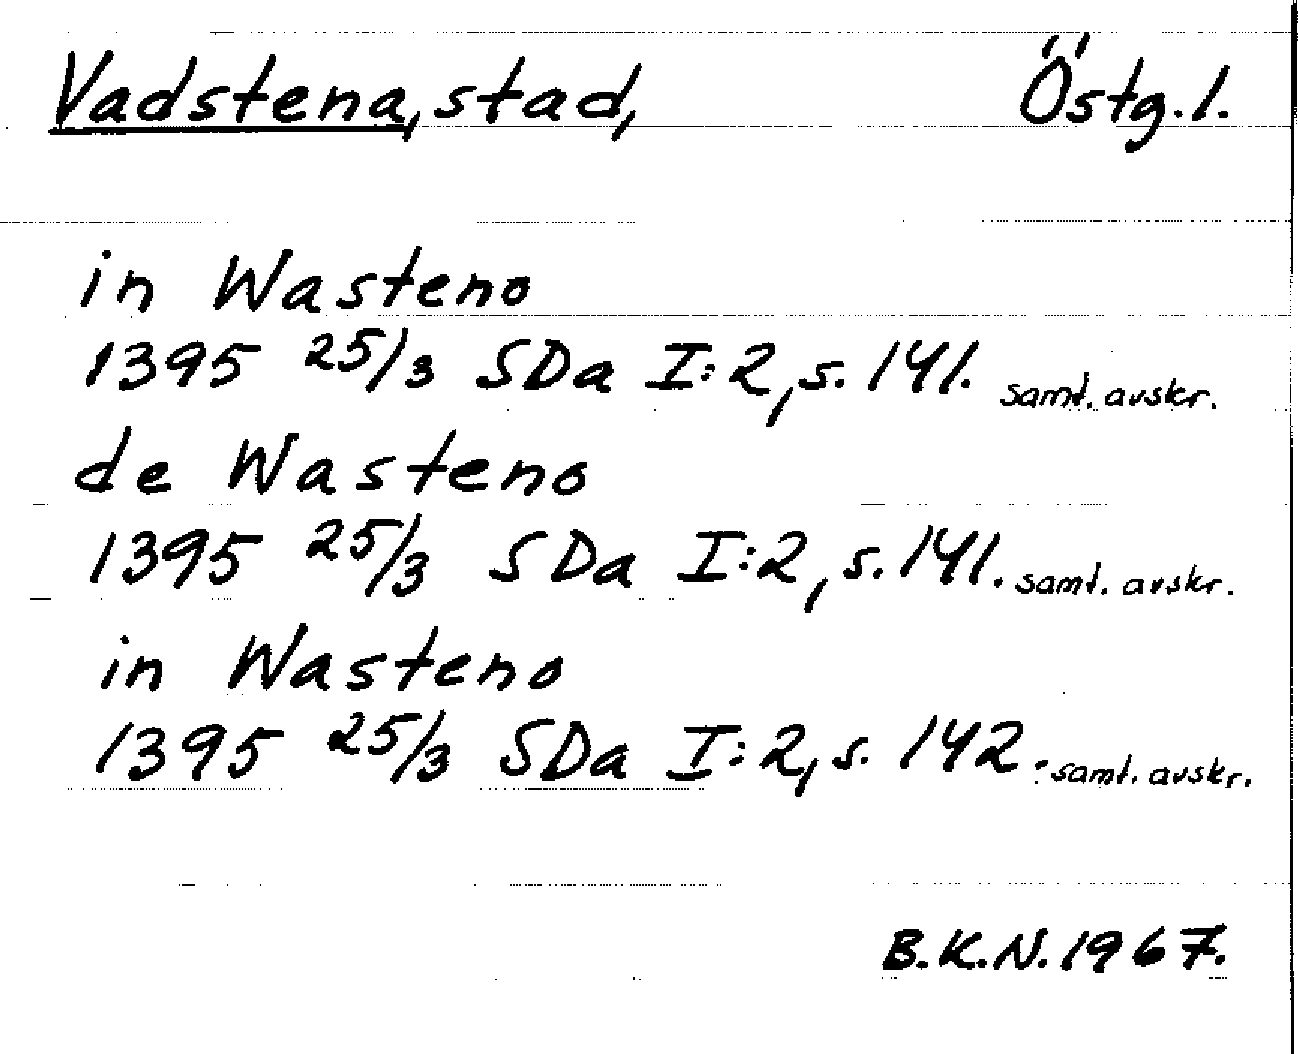 Vadstena, stad, Östg.l.
in Wasteno
1395 25/3 SDa I:2, s. 141. samt. avskr.
de Wasteno
1395 25/3 SDa I:2, s. 141. samt. avskr.
in Wasteno
1395 25/3 SDa I:2, s. 142. samt. avskr.
B.K.N. 1967.